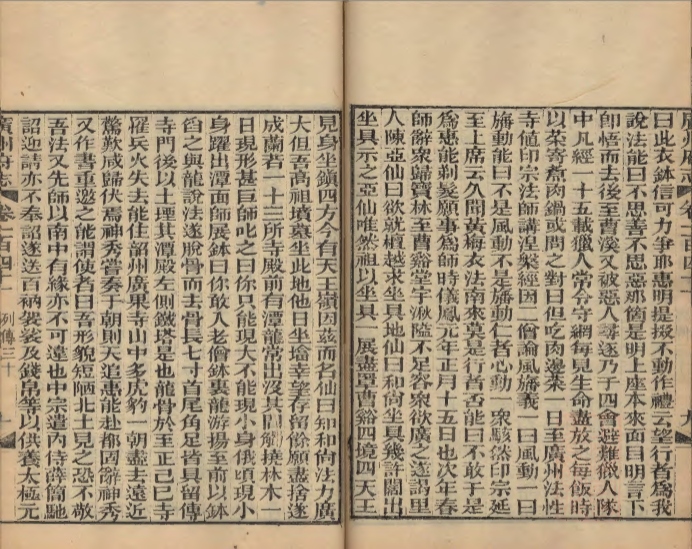 廣州府志 卷一百四十一
曰此衣鉢信可力爭耶惠明提掇不動作禮云望行者爲我
說法能曰不思善不思惡那箇是明上座本來面目明言下
即悟而去後至曹溪又被惡人尋逐乃于四會避難獵人隊
中凡經一十五載獵人常令守綱每見生命盡放之每飯時
以菜寄煮肉鍋或問之對曰但吃肉邊菜一日至廣州法性
寺値印宗法師講湼槃經因二僧論風旛義一曰風動一曰
旛動能曰不是風動不是旛動仁者心動一衆駭然印宗延
至上席云久聞黃梅衣法南來莫是行者否能曰不敢于是
爲惠能剃髮願事爲師時儀鳳元年正月十五日也次年春
師辭衆歸寶林至曹溪堂宇湫隘不足容衆欲廣之遂謁里
人陳亞仙曰欲就檀越求坐具地仙曰和尚坐具幾許闊出
坐具示之亞仙唯然祖以坐具一展盡罩曹谿四境四天王
見身坐鎮四方今有天王嶺因茲而名仙曰知和尚法力廣
大但吾高祖墳墓坐此地他日坐塔幸望存留餘願盡捨遂
成蘭若一十三所寺殿前有潭龍常出沒其間觸撓林木一
日現形甚巨師叱之曰你只能現大不能現小身俄頃現小
身躍出潭面師展鉢曰你敢入老僧鉢裏龍游揚至前以鉢
舀之與龍說法遂脫骨而去骨長七寸首尾角足皆具留傳
寺門後以土堙其潭殿左側鐵塔是也龍骨於至正己巳寺
罹兵火失去能住韶州廣果寺山中多虎豹一朝盡去遠近
驚歎咸歸伏焉神秀嘗奏于朝則天追惠能赴都固辭神秀
又作書重邀之能謂使者曰吾形貌短陋北土見之恐不敬
吾法又先師以南中有緣亦不可違也中宗遣內侍薛簡馳
詔迎請亦不奉詔遂送百衲袈裟及錢帛等以供養太極元
廣州府志 卷一百四十一 列傳三十